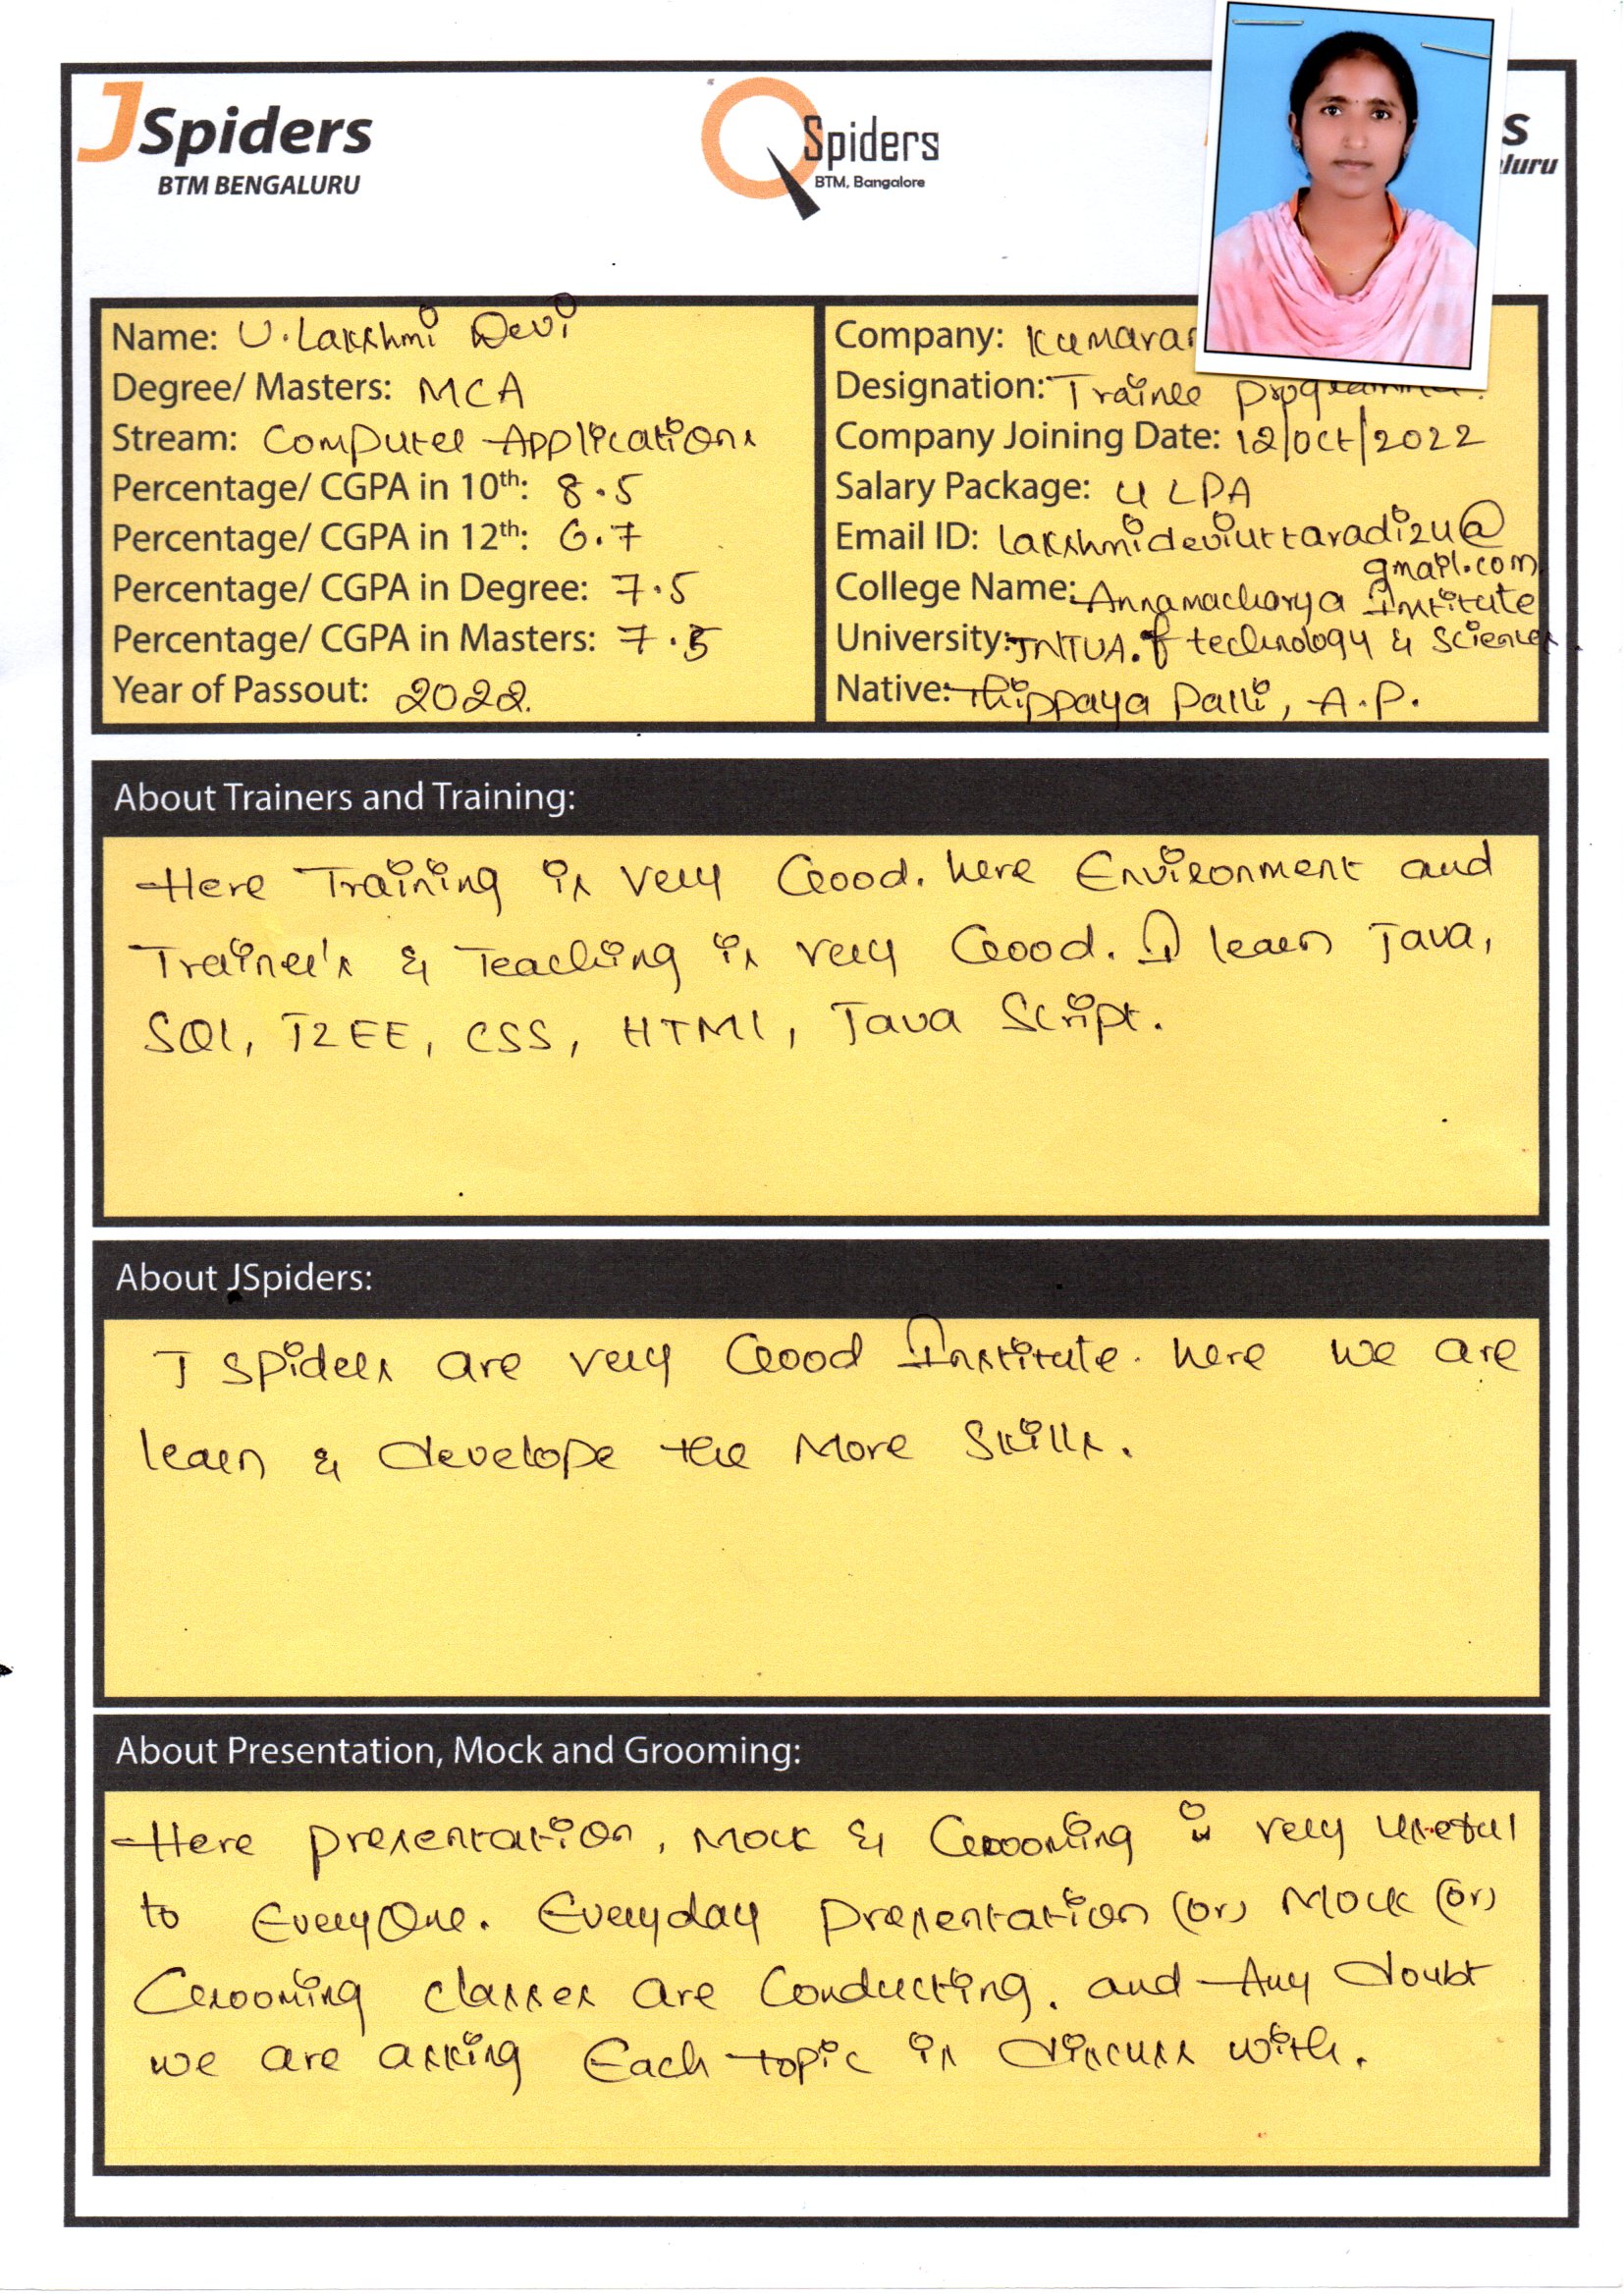 JSpiders
BTM BENGALURU
QSpiders
BTM, Bangalore
s
luru
Name: U. Lakshmi Devi
Degree/ Masters: MCA
Stream: Computer Applications
Percentage/ CGPA in 10th: 8.5
Percentage/ CGPA in 12th: 6.7
Percentage/ CGPA in Degree: 7.5
Percentage/ CGPA in Masters: 7.5
Year of Passout: 2022.
Company: Kumaran
Designation: Trainee programmer.
Company Joining Date: 12/oct/2022
Salary Package: 4 LPA
Email ID: lakshmideviuttaradi24@
gmail.com
College Name: Annamacharya Institute
University: JNTUA. of technology & Sciences.
Native: Thippaya Palli, A.P.
About Trainers and Training:
Here Training is very Good. here Environment and
Trainer's & Teaching is very Good. I learn Java,
SQl, J2EE, CSS, HTMl, Java Script.
About JSpiders:
J spiders are very Good Institute. here we are
learn & develope the More Skills.
About Presentation, Mock and Grooming:
Here presentation, Mock & Grooming is very useful
to EveryOne. Everyday presentation (or) Mock (or)
Grooming classes are Conducting. and Any doubt
we are asking Each topic is discuss with.